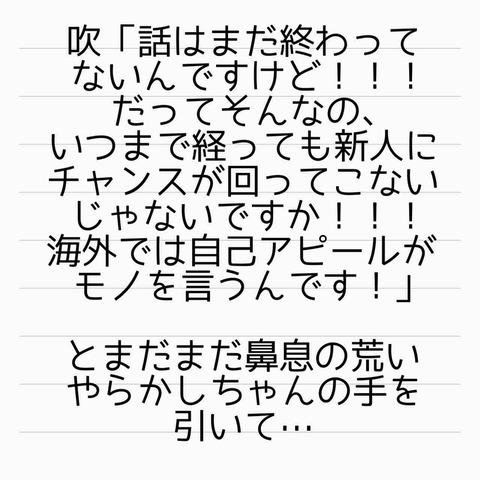 吹「話はまだ終わって
ないんですけど！！！
だってそんなの、
いつまで経っても新人に
チャンスが回ってこない
じゃないですか！！！
海外では自己アピールが
モノを言うんです！」
とまだまだ鼻息の荒い
やらかしちゃんの手を
引いて…